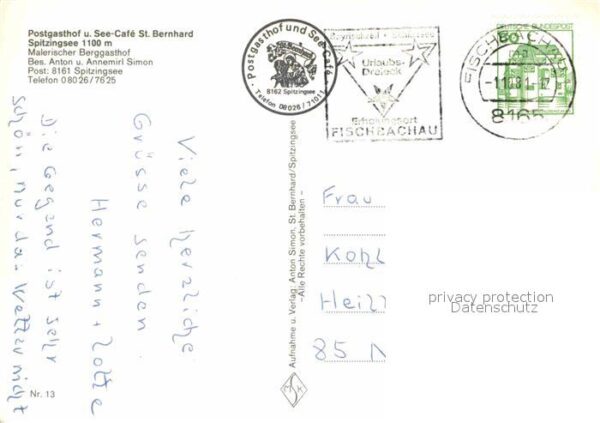 Postgasthof u. See-Café St. Bernhard
Spitzingsee 1100 m
Malerischer Berggasthof
Bes. Anton u. Annemirl Simon
Post: 8161 Spitzingsee
Telefon 08026/7625
Postgasthof und See-Café
8162 Spitzingsee
Telefon 08026 / 71011
Urlaubs-
Dreieck
Erholungsort
FISCHBACHAU
DEUTSCHE BUNDESPOST
FISCHBACHAU
8165
Viele herzliche
Grüsse senden
Hermann + Lotte
Die Gegend ist sehr
schön, nur das Wetter nicht
Aufnahme u. Verlag: Anton Simon, St. Bernhard/Spitzingsee
–Alle Rechte vorbehalten–
Frau
Kohl
Heil
85 N
privacy protection
Datenschutz
MSK
Nr. 13